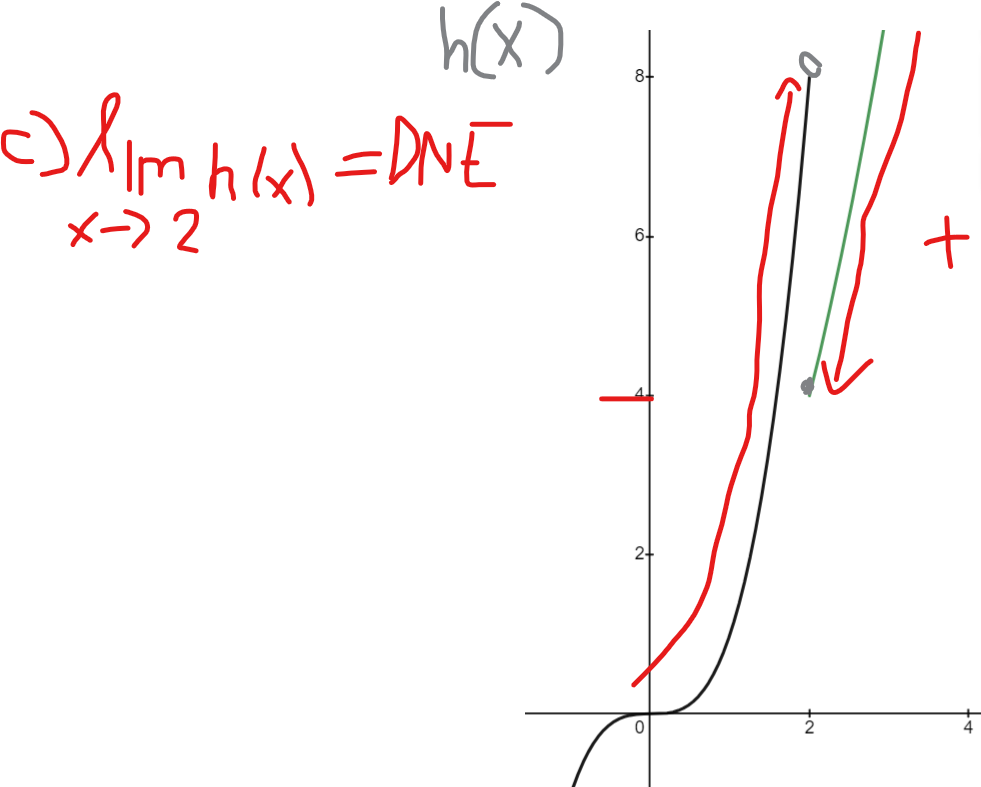 h(x)
c) lim h(x) = DNE
x → 2
8
6
+
4
2
0 2 4